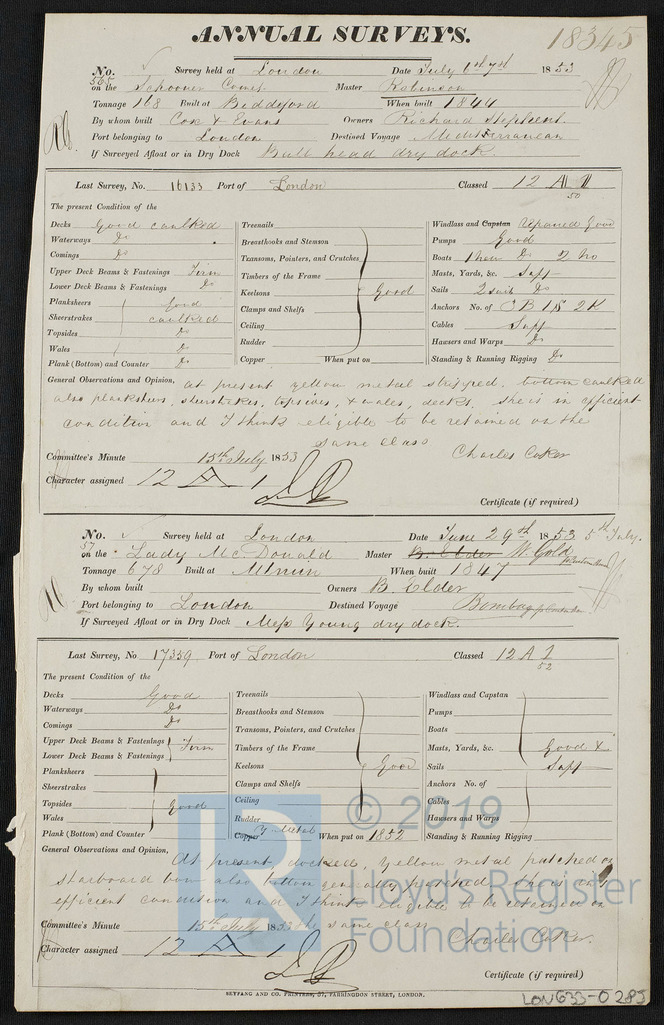 ANNUAL SURVEYS.
18345
No. 565 Survey held at London Date July 6th 7th 1853
on the Schooner Comet Master Robinson
Tonnage 168 Built at Biddeford When built 1844
By whom built Cox & Evans Owners Richard
Port belonging to London Destined Voyage Mediterranean
If Surveyed Afloat or in Dry Dock Bull head dry dock.
Last Survey, No. 16133 Port of London Classed 12 A 1
50
The present Condition of the
Decks Good caulked
Waterways Do
Comings Do
Upper Deck Beams & Fastenings Firm
Lower Deck Beams & Fastenings Do
Planksheers Good
Sheerstrakes caulked
Topsides Do
Wales Do
Plank (Bottom) and Counter Do
Treenails
Breasthooks and Stemson
Transoms, Pointers, and Crutches
Timbers of the Frame
Keelsons Good
Clamps and Shelfs
Ceiling
Rudder
Copper When put on
Windlass and Capstan Good
Pumps Good
Boats 1 Do 2 no
Masts, Yards, &c. Supp
Sails 2 suit Do
Anchors No. of CB 1S 2K
Cables Supp
Hawsers and Warps Do
Standing & Running Rigging Do
General Observations and Opinion, at present yellow metal stripped, bottom caulked
also planksheers, sheerstrakes, topsides, & wales, decks, she is in efficient
condition and I think eligible to be retained in the
same class
Charles Coker
Committee's Minute 15th July 1853
Character assigned 12 A 1
Certificate (if required)
No. 57 Survey held at London Date June 29th 1853 5th July.
on the Lady McDonald Master B. Elder W. Gold
Tonnage 678 Built at When built 1847
By whom built Owners B. Elder
Port belonging to London Destined Voyage Bombay
If Surveyed Afloat or in Dry Dock Young dry dock.
Last Survey, No 17359 Port of London Classed 12 A 1
52
The present Condition of the
Decks Good
Waterways Do
Comings Do
Upper Deck Beams & Fastenings Firm
Lower Deck Beams & Fastenings
Planksheers
Sheerstrakes
Topsides Good
Wales
Plank (Bottom) and Counter
Treenails
Breasthooks and Stemson
Transoms, Pointers, and Crutches
Timbers of the Frame
Keelsons Good
Clamps and Shelfs
Ceiling
Rudder
Copper Y Metal When put on 1852
Windlass and Capstan
Pumps
Boats
Masts, Yards, &c. Good &
Sails Supp
Anchors No. of
Cables
Hawsers and Warps
Standing & Running Rigging
General Observations and Opinion, At present docked, yellow metal patched on
starboard bow also bottom generally patched. She is in
efficient condition and I think eligible to be retained in
the same class
Charles Coker.
Committee's Minute 15th July 1853
Character assigned 12 A 1
Certificate (if required)
SEYFANG AND CO. PRINTERS, 57, FARRINGDON STREET, LONDON.
LON633-0285
LR
© 2019
Lloyd's Register
Foundation